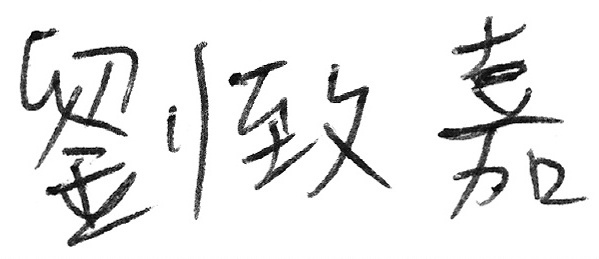 劉致嘉